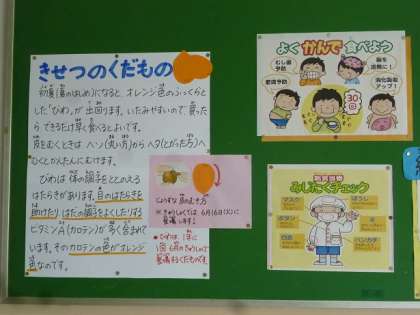 きせつのくだもの
初夏(夏のはじめ)になると、オレンジ色のふっくらと
した「びわ」が出回ります。いたみやすいので、買った
らできるだけ早く食べるとよいです。
皮をむくときはへソ(丸い方)からヘタ(とがった方)へ
むくとかんたんにむけます。
びわは体の調子をととのえる
はたらきがあります。目のはたらきを
助けたり、はだの調子をよくしたりする
ビタミンA(カロテン)が多く含まれて
います。そのカロテンの色がオレンジ
色なのです。
じょうずな皮のむき方
※きゅうしょくでは、6月16日(火)に
登場します!
びわは、1年に
1回、6月のきゅうしょくで
登場するくだものです。
よくかんで食べよう
むし歯
予防
肥満予防
脳を
活発に!
消化吸収
アップ!
30回
給食当番
みじたくチェック
マスク
ぼうし
ボタン
白衣
ハンカチ